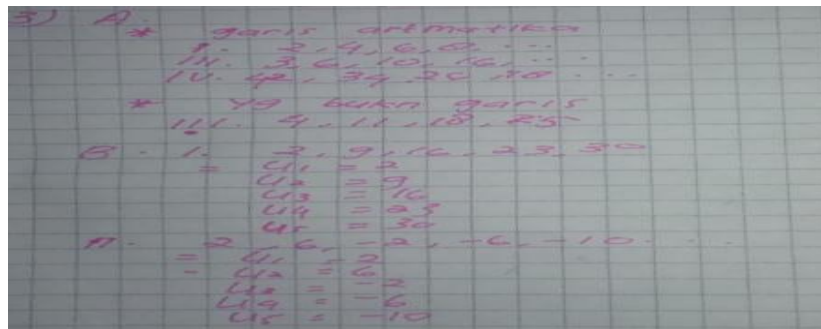 3) A.
* garis artmatika
I. 2, 4, 6, 8, ...
III. 3, 6, 10, 16, ...
IV. 42, 34, 26, 18 ...
* yg bukn garis
III. 4, 11, 18, 25
B. 1. 2, 9, 16, 23, 30
= U1 = 2
U2 = 9
U3 = 16
U4 = 23
U5 = 30
2, 6, -2, -6, -10 ...
= U1 = 2
- U2 = 6
U3 = -2
U4 = -6
U5 = -10